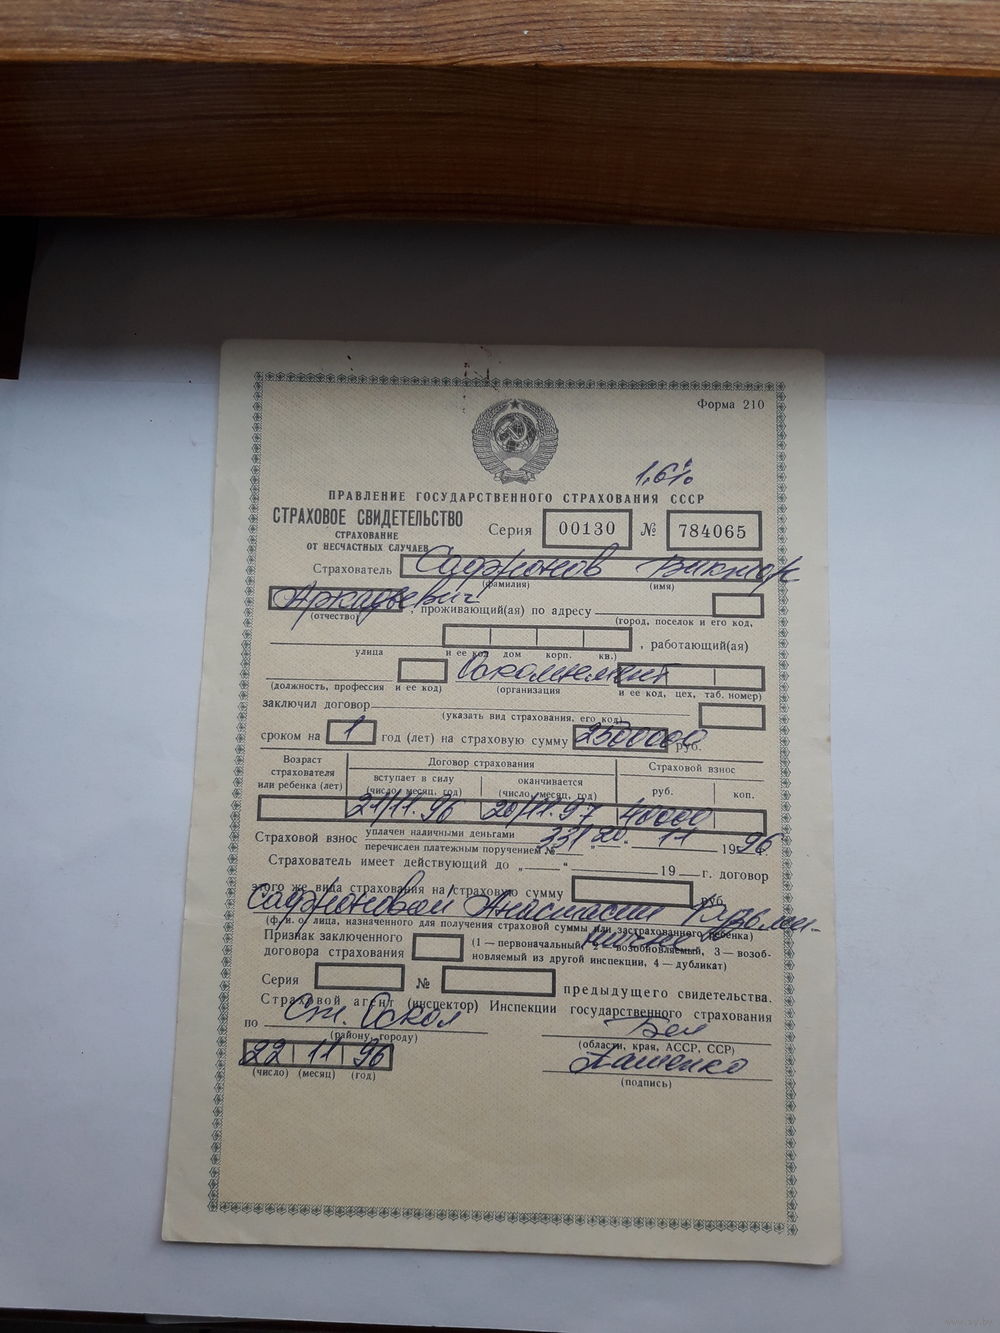 Форма 210
1,6%
ПРАВЛЕНИЕ ГОСУДАРСТВЕННОГО СТРАХОВАНИЯ СССР
СТРАХОВОЕ СВИДЕТЕЛЬСТВО
СТРАХОВАНИЕ
ОТ НЕСЧАСТНЫХ СЛУЧАЕВ
Серия 00130 № 784065
Страхователь Сафронов Виктор
(фамилия) (имя)
Аркадьевич, проживающий(ая) по адресу
(отчество) (город, поселок и его код,
, работающий(ая)
улица и ее код дом корп. кв.)
(должность, профессия и ее код) (организация и ее код, цех, таб. номер)
заключил договор
(указать вид страхования, его код)
сроком на 1 год (лет) на страховую сумму 2500000 руб.
Возраст страхователя или ребенка (лет)
Договор страхования
вступает в силу (число, месяц, год)
оканчивается (число, месяц, год)
Страховой взнос
руб. коп.
21/11.96 20/11.97 40000
Страховой взнос уплачен наличными деньгами
перечислен платежным поручением № 331 20. 11 1996 г.
Страхователь имеет действующий до „ “ 19 г. договор
этого же вида страхования на страховую сумму руб.
Сафроновой Анастасии
(ф. и. о. лица, назначенного для получения страховой суммы или застрахованного ребенка)
Признак заключенного договора страхования
(1 — первоначальный, 2 — возобновляемый, 3 — возобновляемый из другой инспекции, 4 — дубликат)
Серия № предыдущего свидетельства.
Страховой агент (инспектор) Инспекции государственного страхования
по Ст. Окол Бел
(району, городу) (области, края, АССР, ССР)
22 11 96
(число) (месяц) (год) (подпись)